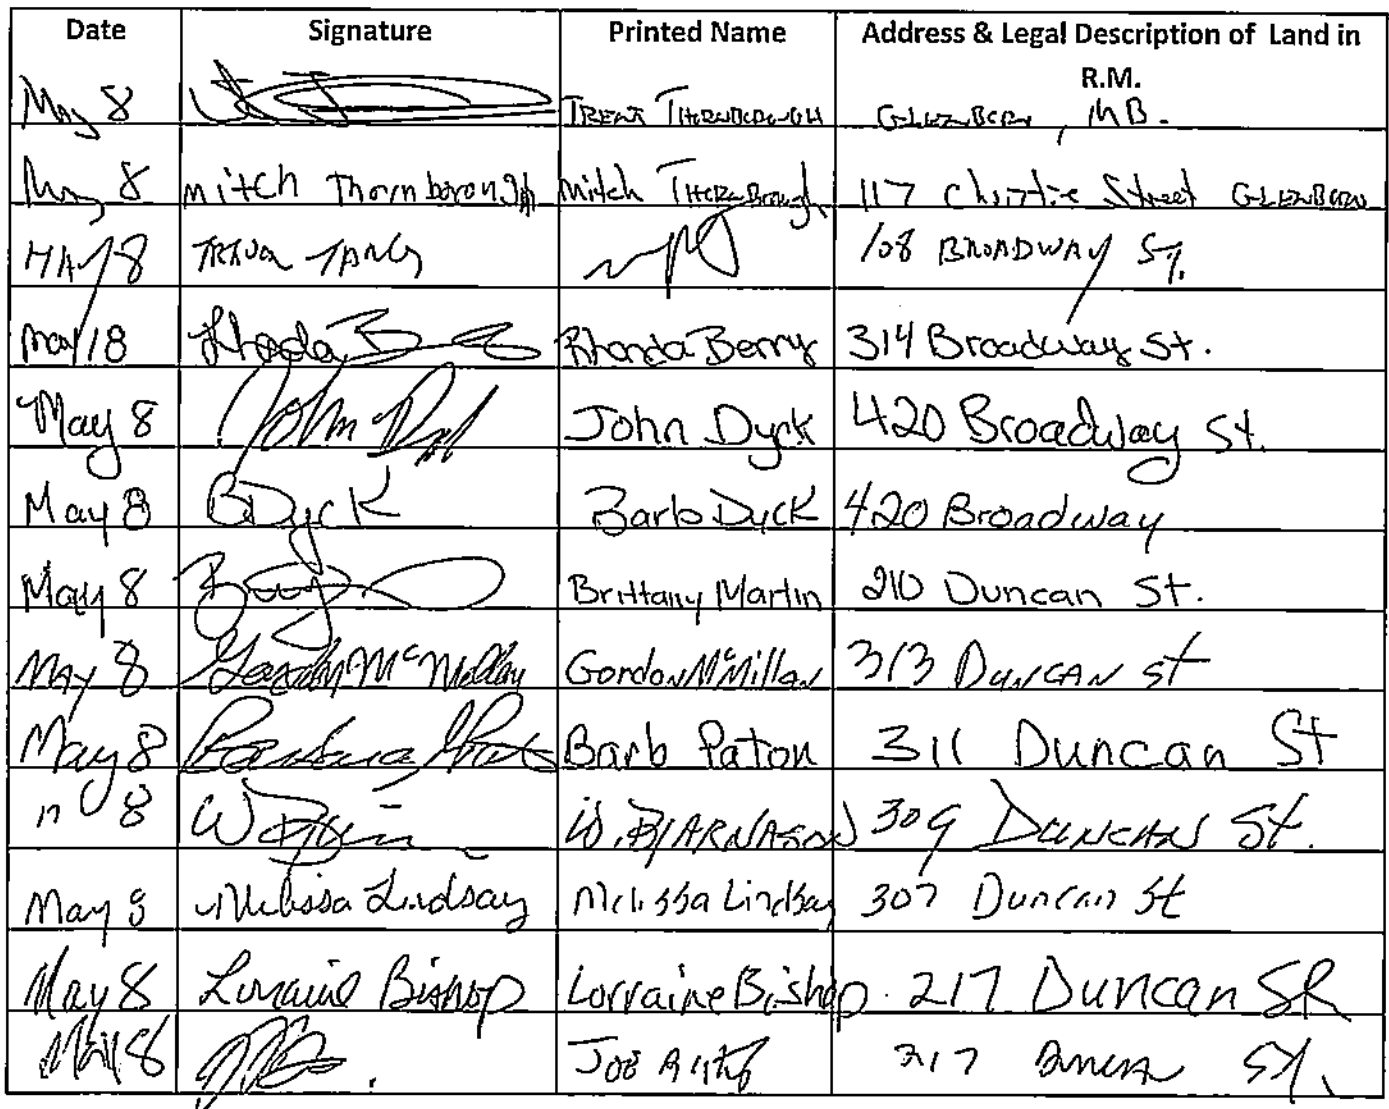 Date Signature Printed Name Address & Legal Description of Land in
R.M.
May 8 Trent Thornborough Glenboro, MB.
May 8 mitch Thornborough mitch Thornborough 117 Christie Street Glenboro
MAY 8 108 BROADWAY St.
May 18 Rhoda B Rhonda Berry 314 Broadway St.
May 8 John Dyck John Dyck 420 Broadway St.
May 8 B Dyck Barb Dyck 420 Broadway
May 8 Brittany Martin 210 Duncan St.
May 8 Gordon McMillan Gordon McMillan 313 DUNCAN St
May 8 Barbara Paton Barb Paton 311 Duncan St
" 8 W. BJARNASON 309 DUNCAN St.
May 8 Melissa Lindsay Melissa Lindsay 307 Duncan St
May 8 Lorraine Bishop Lorraine Bishop 217 Duncan St
May 8 JOE 217 St.